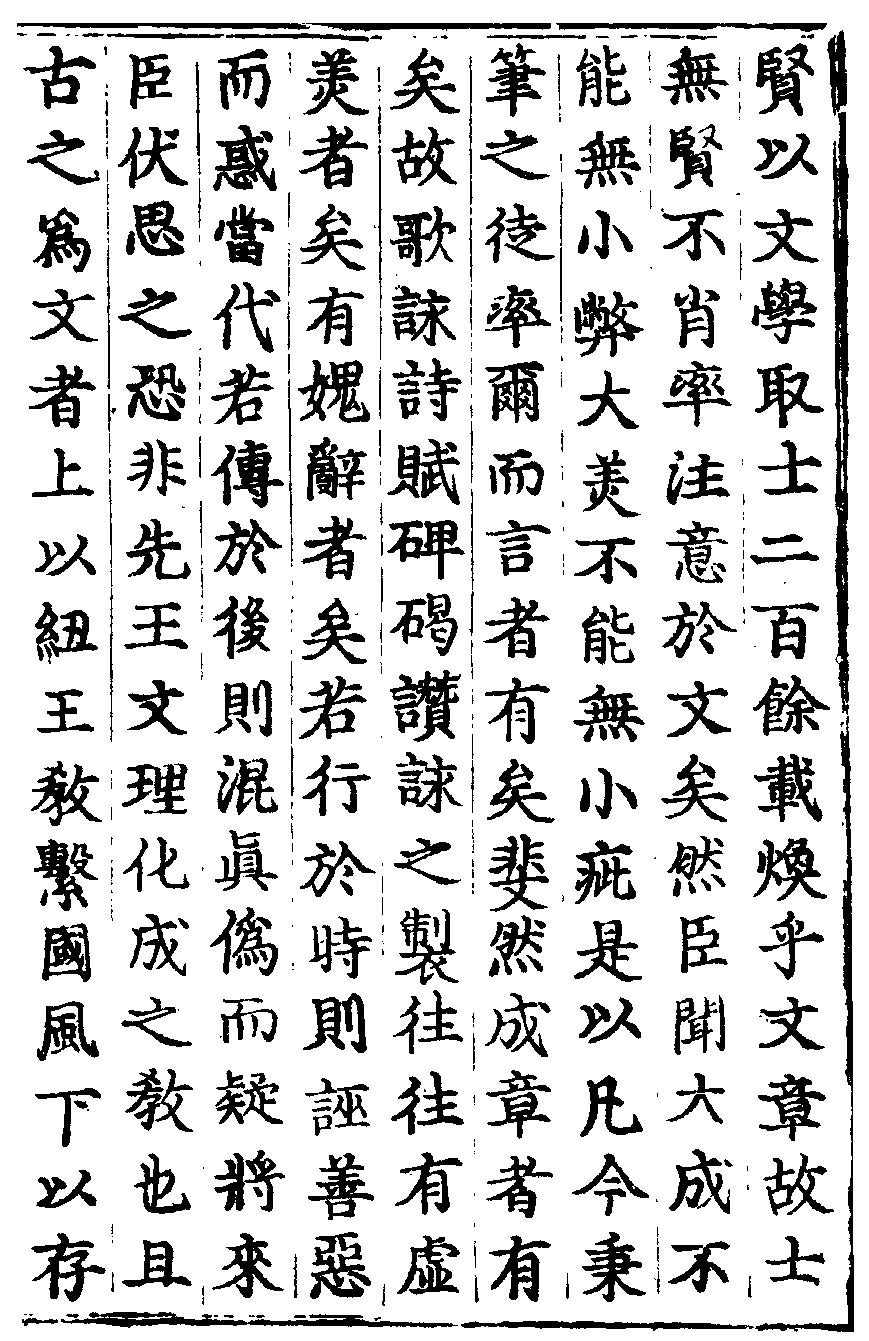 賢以文學取士二百餘載煥乎文章故士
無賢不肖率注意於文矣然臣聞大成不
能無小弊大羙不能無小疵是以凡今秉
筆之徒率爾而言者有矣斐然成章者有
矣故歌詠詩賦碑碣讃詠之製往往有虛
羙者矣有媿辭者矣若行於時則誣善惡
而惑當代若傳於後則混眞僞而疑將來
臣伏思之恐非先王文理化成之敎也且
古之爲文者上以紐王敎繫國風下以存